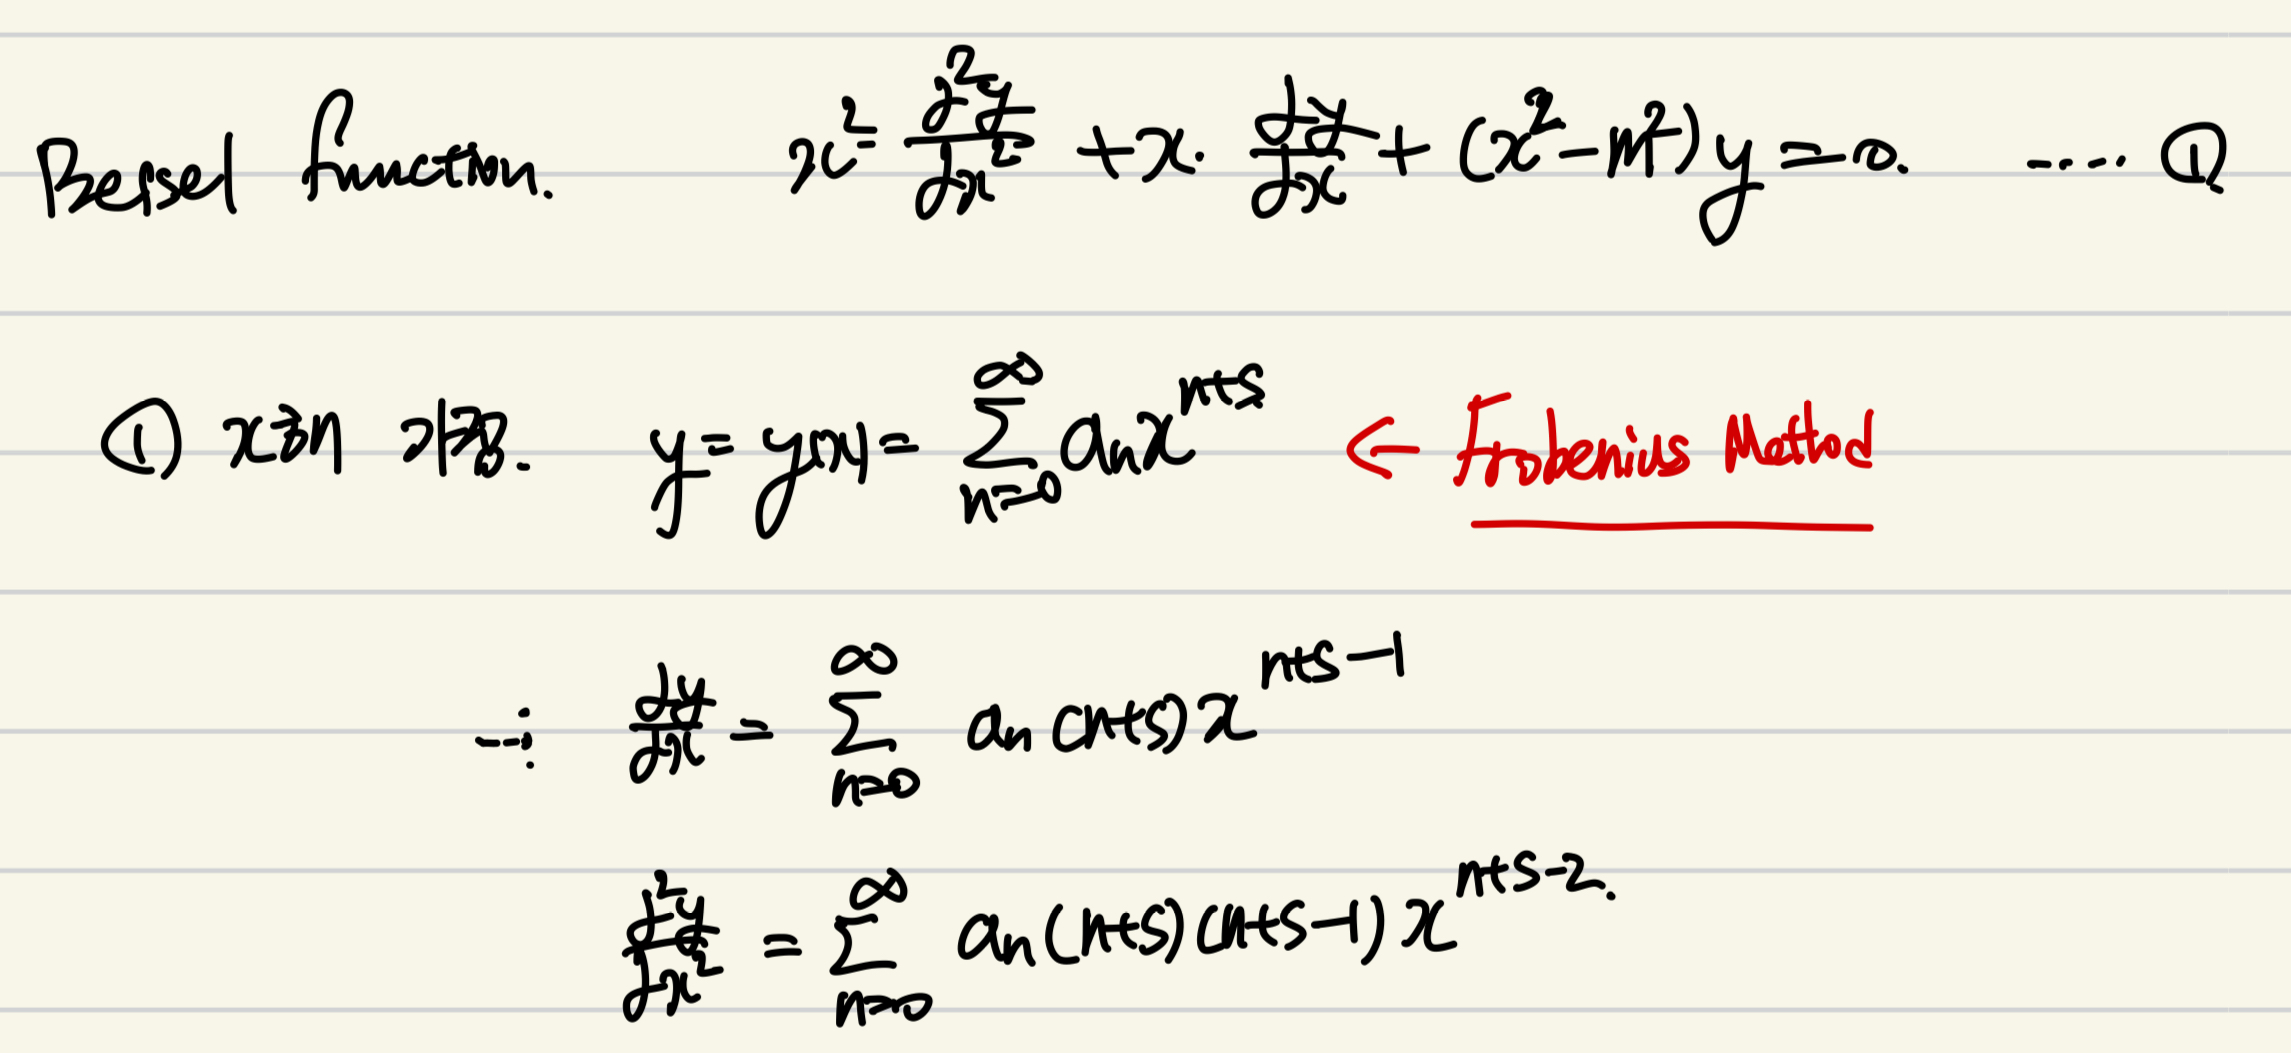 Bessel function. x² d²y/dx² + x · dy/dx + (x² − m²) y = 0. .... ①
① 급수 y = y(x) = ∑_{n=0}^{∞} aₙ x^{n+s} ← Frobenius Method
∴ dy/dx = ∑_{n=0}^{∞} aₙ (n+s) x^{n+s−1}
d²y/dx² = ∑_{n=0}^{∞} aₙ (n+s)(n+s−1) x^{n+s−2}.